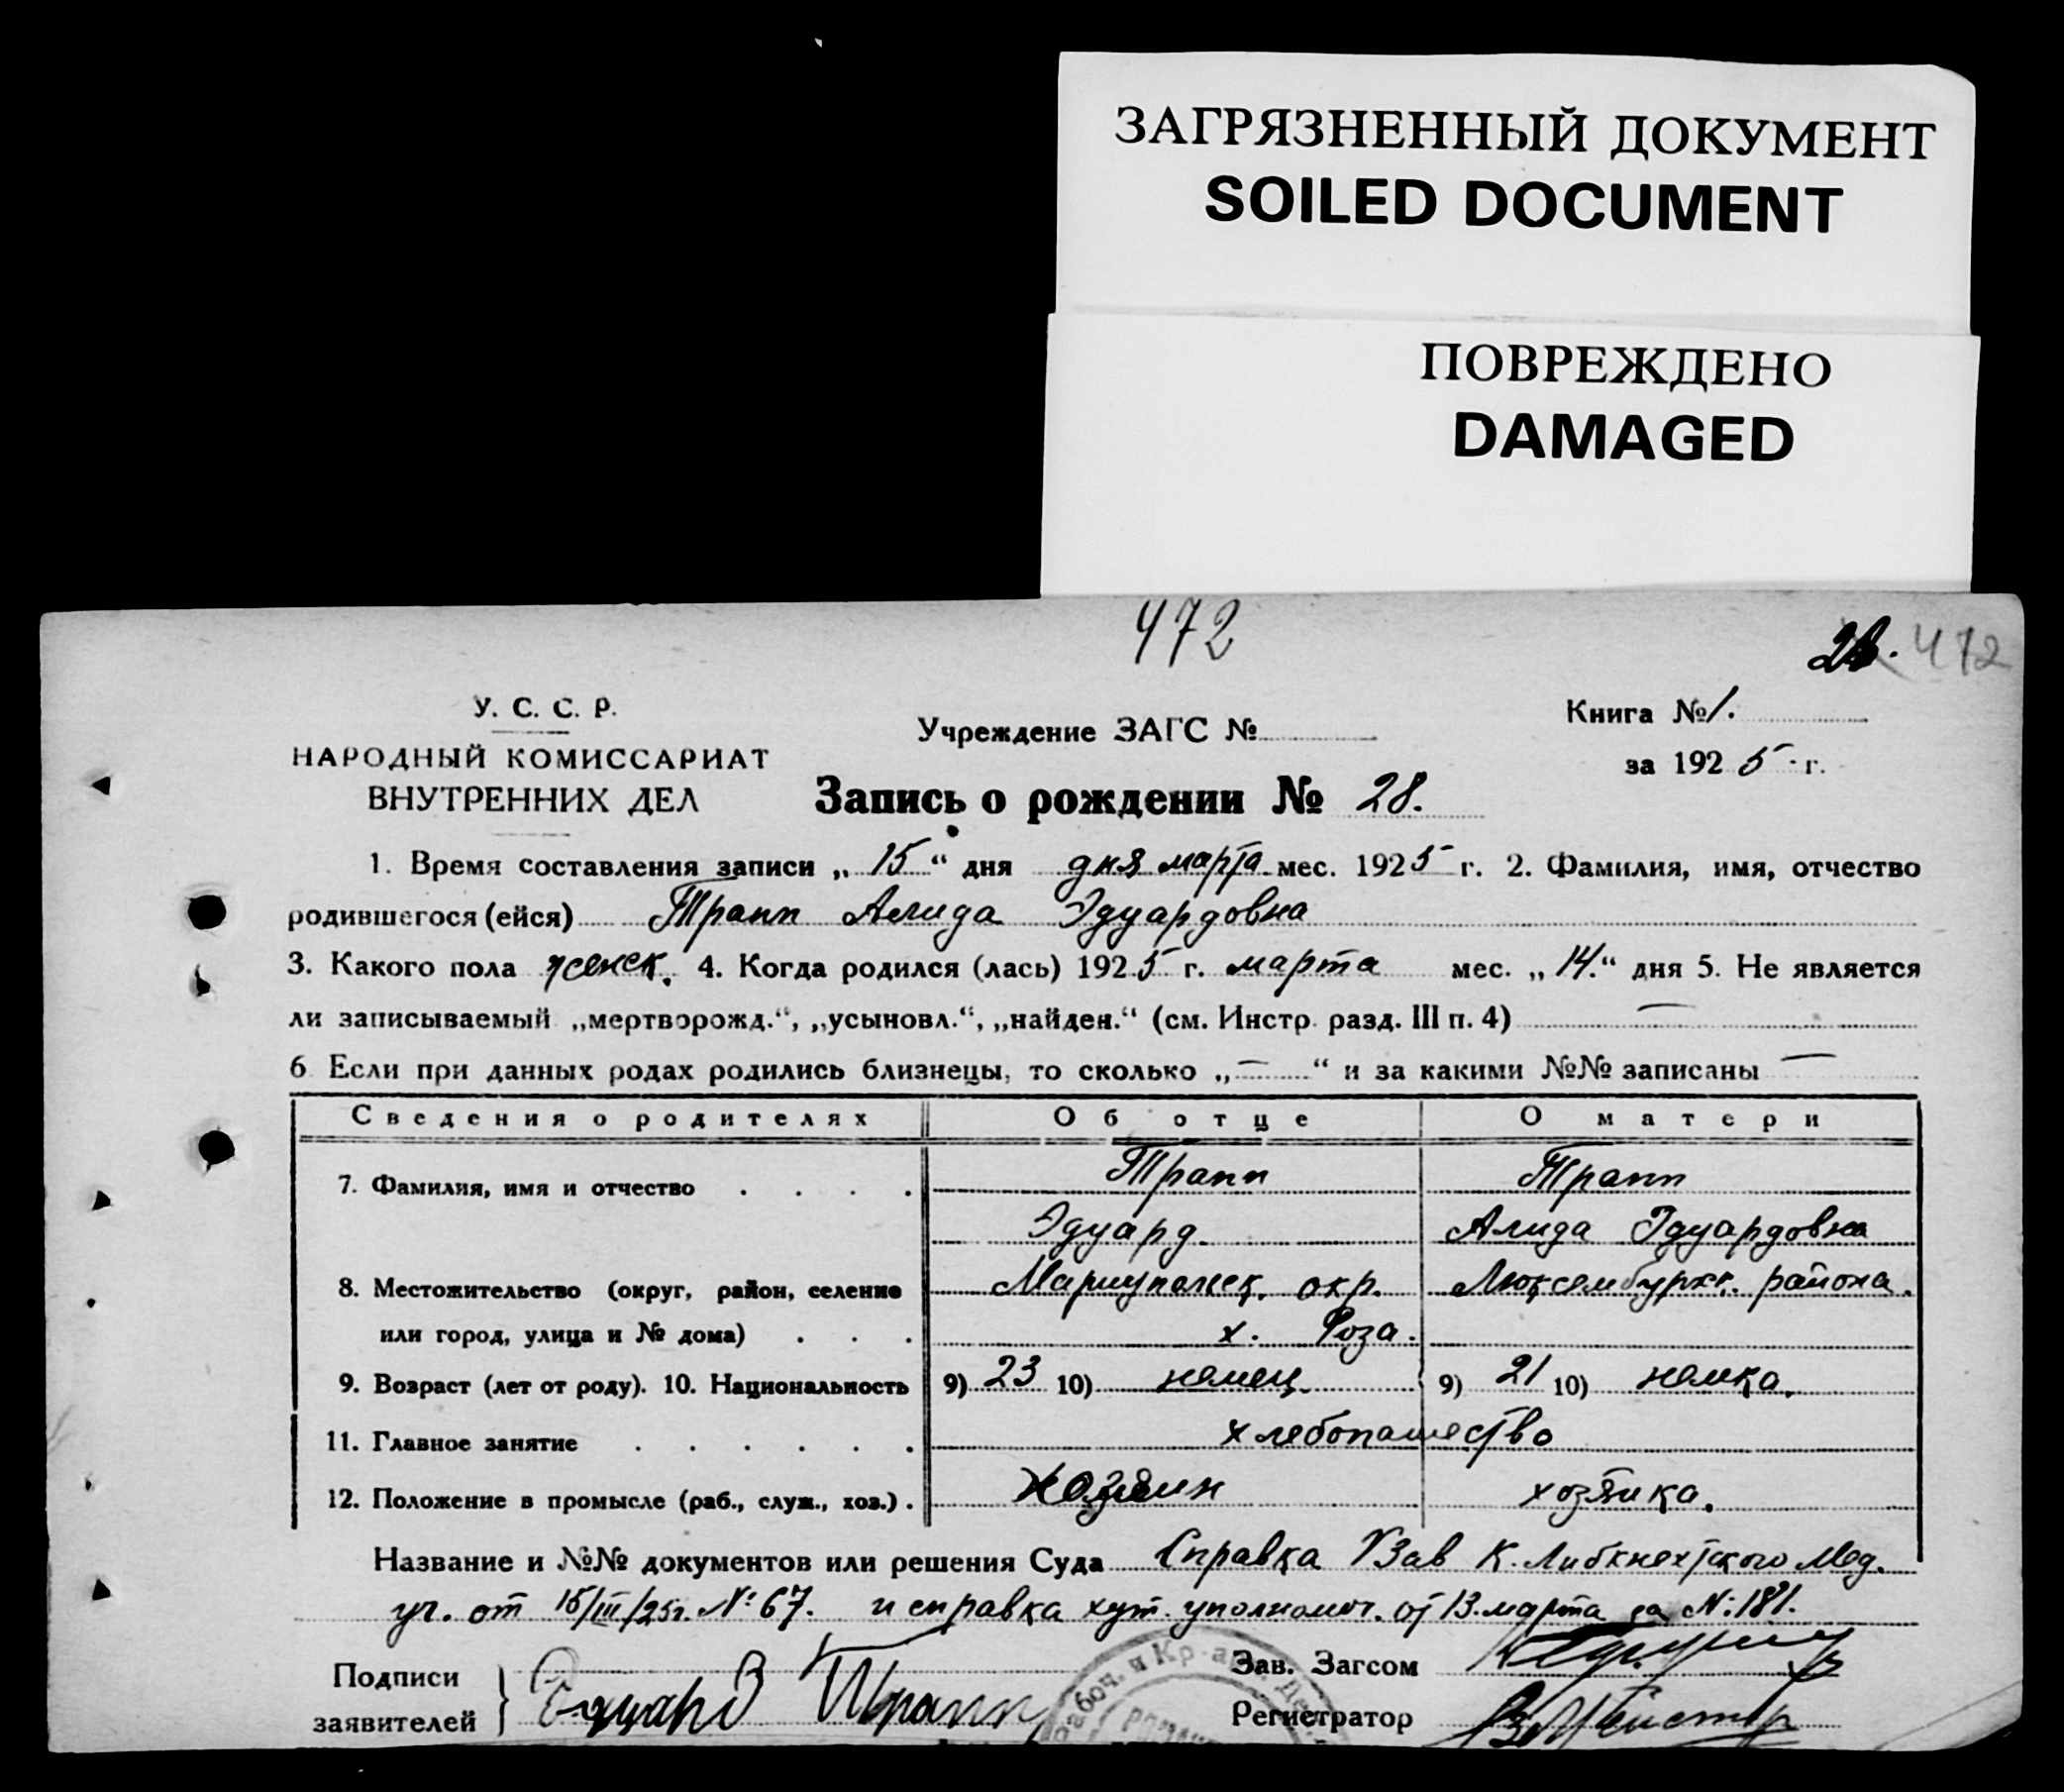 ЗАГРЯЗНЕННЫЙ ДОКУМЕНТ
SOILED DOCUMENT
ПОВРЕЖДЕНО
DAMAGED
472
28. 472
У. С. С. Р.
НАРОДНЫЙ КОМИССАРИАТ
ВНУТРЕННИХ ДЕЛ
Учреждение ЗАГС №
Книга № 1.
за 1925 г.
Запись о рождении № 28.
1. Время составления записи „15“ дня дня марта мес. 1925 г. 2. Фамилия, имя, отчество
родившегося (ейся) Трапп Алида Эдуардовна
3. Какого пола женск. 4. Когда родился (лась) 1925 г. марта мес. „14.“ дня 5. Не является
ли записываемый „мертворожд.“, „усыновл.“, „найден.“ (см. Инстр. разд. III п. 4) —
6 Если при данных родах родились близнецы, то сколько „—“ и за какими №№ записаны —
Сведения о родителях Об отце О матери
7. Фамилия, имя и отчество . . . . Трапп Трапп
Эдуард Алида Эдуардовна
8. Местожительство (округ, район, селение Мариупольск. окр. Люксембургск. района.
или город, улица и № дома) . . . х. Роза.
9. Возраст (лет от роду). 10. Национальность 9) 23 10) немец 9) 21 10) немка.
11. Главное занятие . . . . . . хлебопашество
12. Положение в промысле (раб., служ., хоз.) . хозяин хозяйка.
Название и №№ документов или решения Суда Справка Зав К. Либкнехтского Мед.
уч. от 15/III/25г. № 67. и справка хут. уполномоч. от 13. марта за № 181.
Подписи
заявителей } Эдуард Трапп
Зав. Загсом
Регистратор
Рабоч. и Кр-а